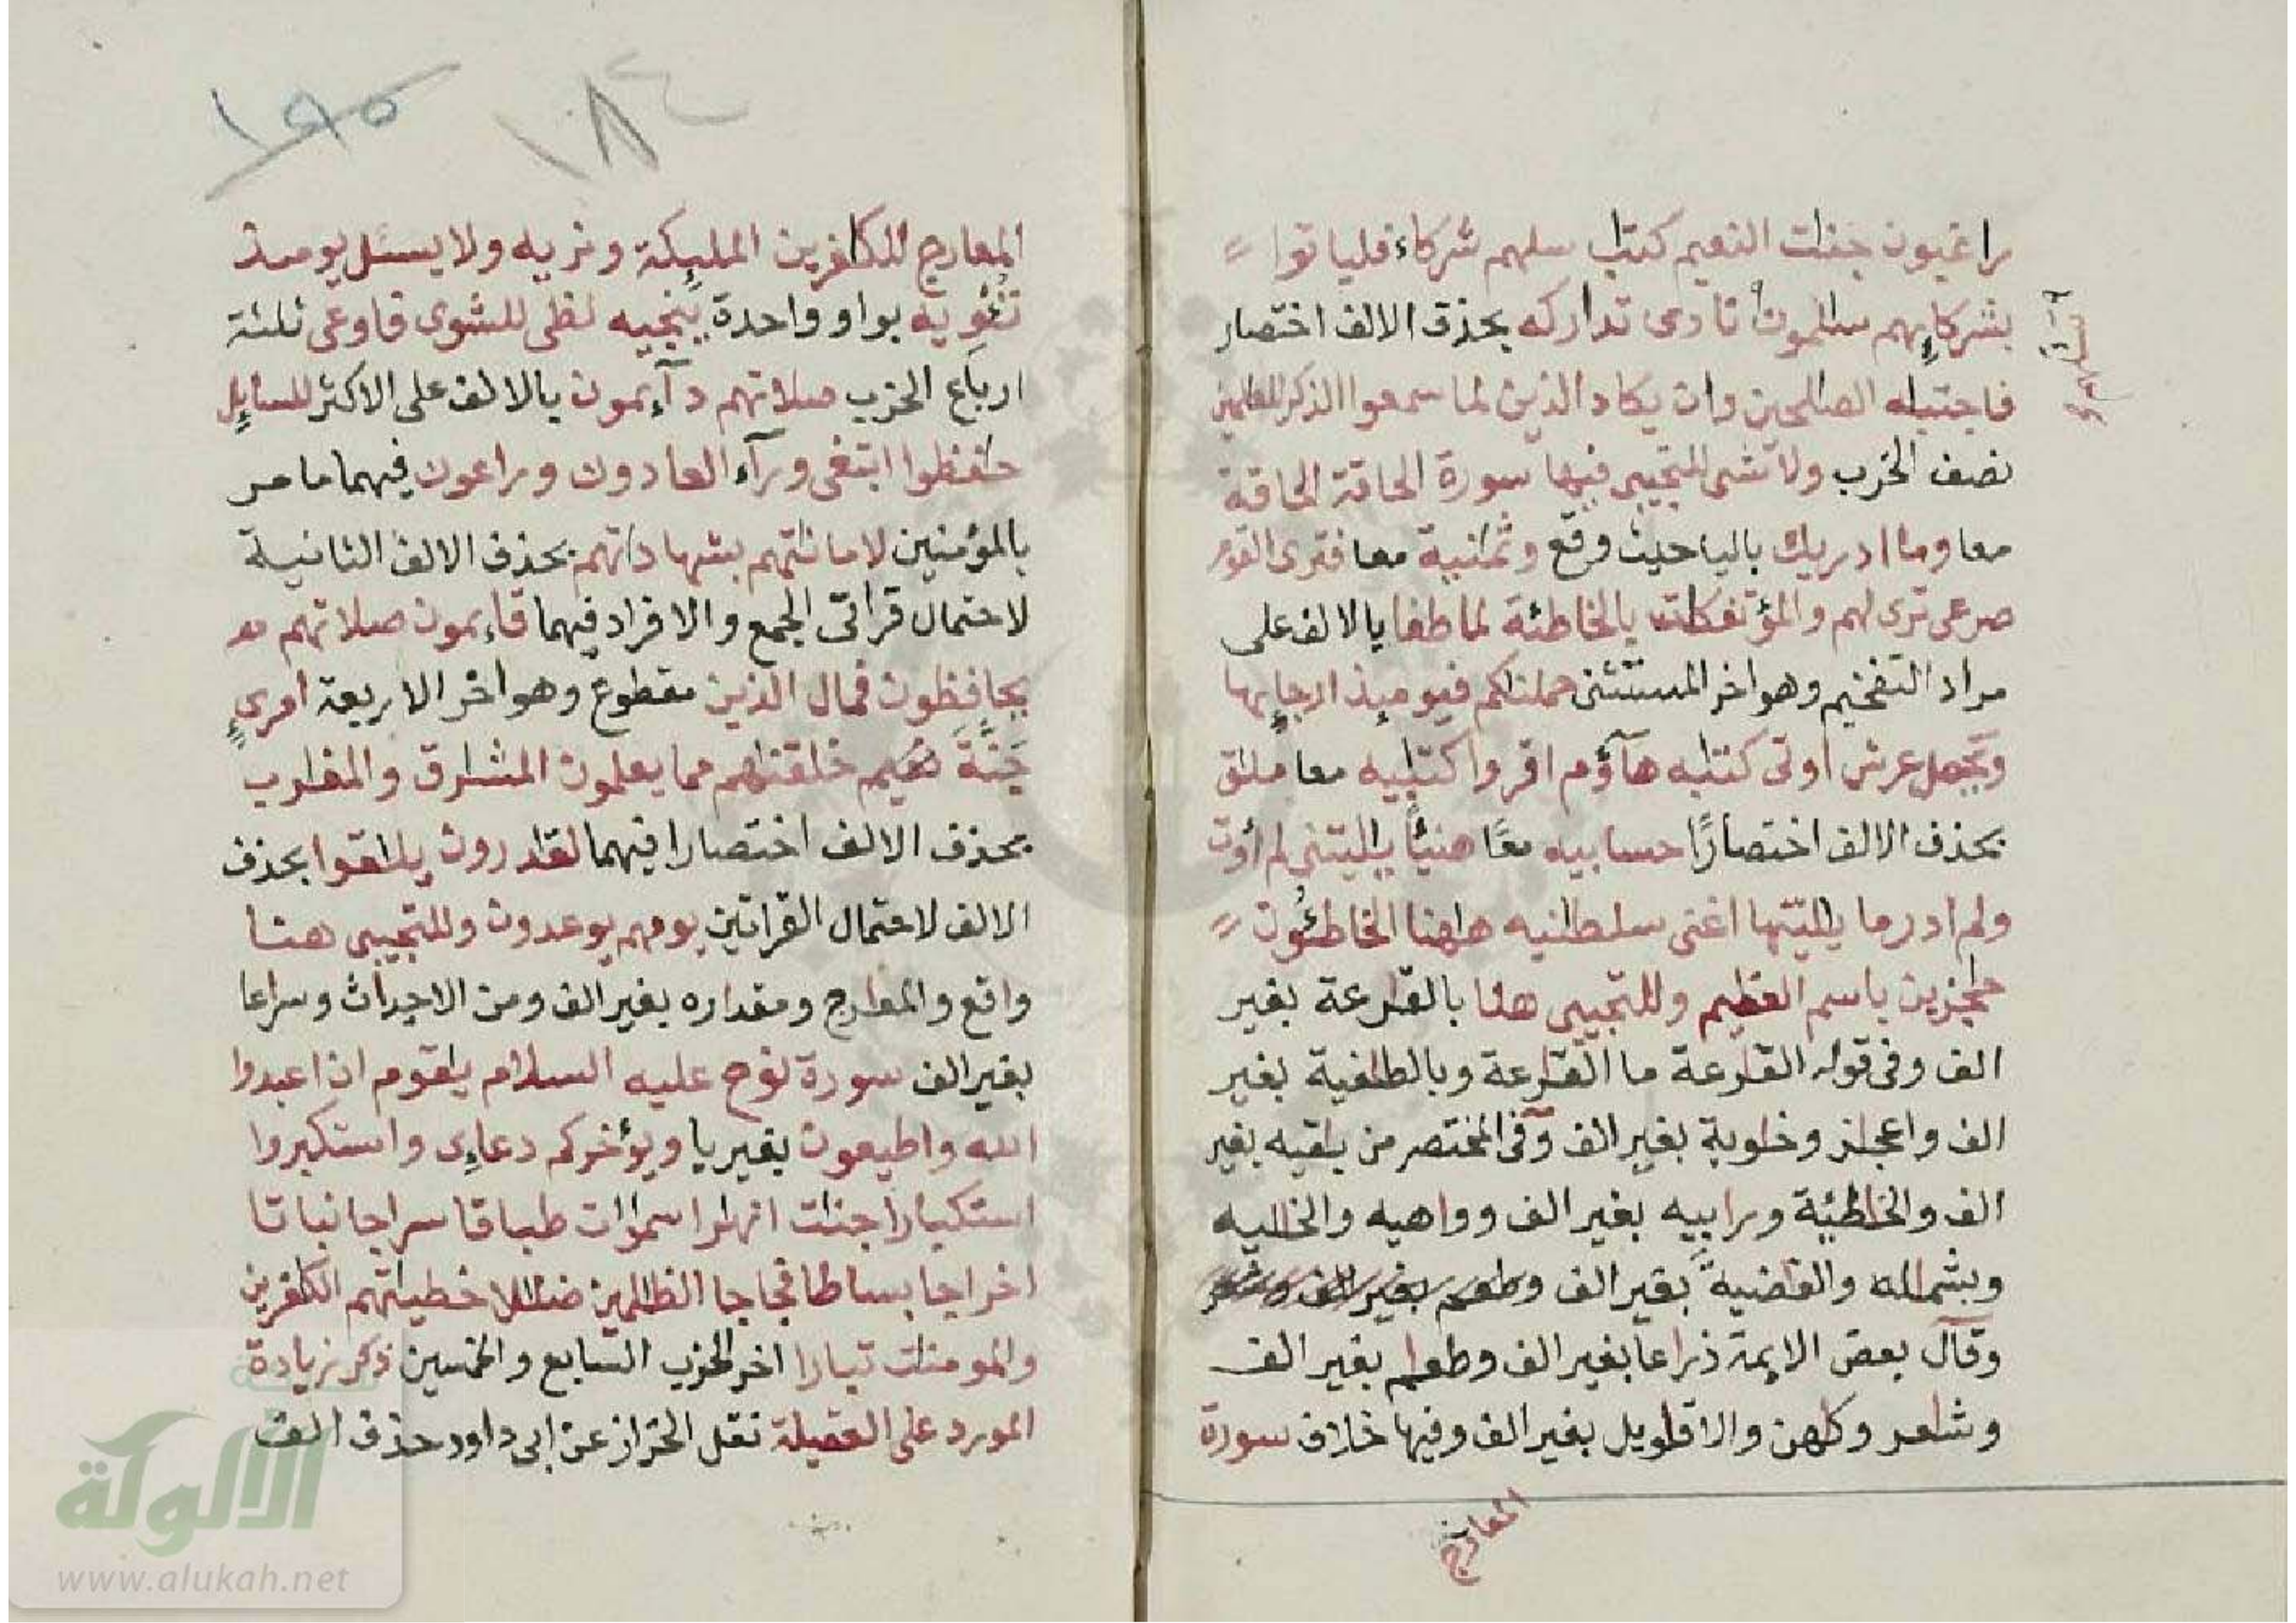 راغبون جنات النعيم كتاب سلهم شركاء فلياتوا
بشركايهم سالمون نادى تداركه بحذف الالف اختصار
فاجتباه الصالحين وان يكاد الذين لما سمعوا الذكر للعلمين
نصف الحزب ولا شى للتجيبى فيها سورة الحاقة الحاقة
معا وما ادريك باليا حيث وقع وثمانية معا فترى القوم
صرعى ترى لهم والمؤتفكات بالخاطئة لما طغا بالالف على
مراد التفخيم وهو اخر المستثنى حملناكم فيوميذ ارجايها
ويحمل عرش اوتى كتابه هآؤم اقرواكتابيه معا ملاق
بحذف الالف اختصارًا حسابيه معًا هنيئًا ياليتنى لم أوت
ولم ادر ما ياليتها اغنى سلطانيه هاهنا الخاطئون
حاجزين باسم العظيم وللتجيبى هنا بالقارعة بغير
الف وفى قوله القارعة ما القارعة وبالطاغية بغير
الف واعجاز وخاوية بغير الف وفى المختصر من باقيه بغير
الف والخاطئة ورابيه بغير الف وواهيه والخاليه
وبشماله والقاضية بغير الف وطعام بغير الف
وقال بعض الايمة ذراعا بغير الف وطعام بغير الف
وشاعر وكاهن والاقاويل بغير الف وفيها خلاف سورة
المعارج
١٩٥ ١٨٤
المعارج للكافرين المليكة ونريه ولا يسئل يوميذ
تئويه بواو واحدة ينجيه لظى للشوى فاوعى ثلثة
ارباع الحزب صلاتهم دآيمون بالالف على الاكثر للسايل
حافظوا ابتغى ورآء العادون وراعون فيهما ما مر
بالمؤمنين لاماناتهم بشهاداتهم بحذف الالف الثانية
لاحتمال قراتى الجمع والافراد فيهما قايمون صلاتهم
يحافظون فمال الذين مقطوع وهو اخر الاربعة امرئ
جنة نعيم خلقناهم مما يعلمون المشارق والمغارب
بحذف الالف اختصارا فيهما لقادرون يلاقوا بحذف
الالف لاحتمال القراتين يومهم يوعدون وللتجيبى هنا
واقع والمعارج ومقداره بغير الف ومن الاجداث وسراعا
بغير الف سورة نوح عليه السلام ياقوم ان اعبدوا
الله واطيعون بغير يا ويؤخركم دعاءى واستكبروا
استكبارا جنات انهارا سموات طباقا سراجا نباتا
اخراجا بساطا فجاجا الظالمين ضلالا خطيئتهم الكافرين
والمومنات تبارا اخر الحزب السابع والخمسين ذكر زيادة
المورد على العقيلة نقل الخراز عن ابى داود حذف الف
الالوكة
www.alukah.net